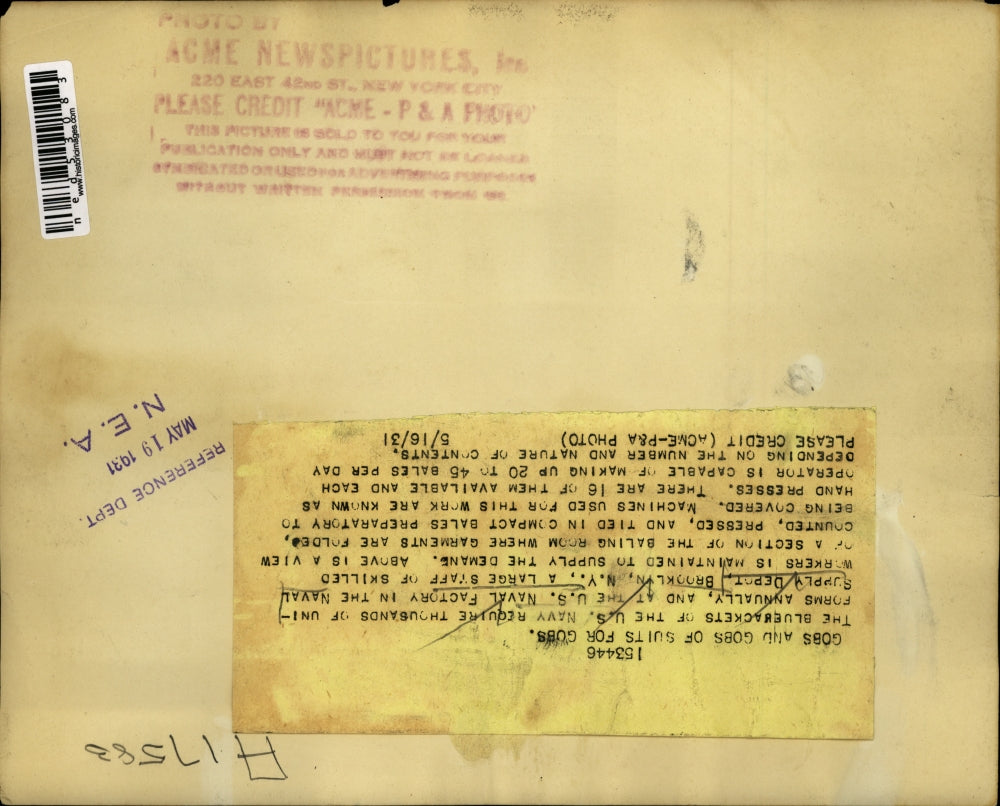 PHOTO BY
ACME NEWSPICTURES, Inc
220 EAST 42ND ST., NEW YORK CITY
PLEASE CREDIT "ACME - P & A PHOTO"
THIS PICTURE IS SOLD TO YOU FOR YOUR
PUBLICATION ONLY AND MUST NOT BE LOANED
SYNDICATED OR USED FOR ADVERTISING PURPOSES
WITHOUT WRITTEN PERMISSION FROM US
ned53083
www.historicimages.com
REFERENCE DEPT.
MAY 19 1931
N. E. A.
153446
GOBS AND GOBS OF SUITS FOR GOBS.
THE BLUEJACKETS OF THE U.S. NAVY REQUIRE THOUSANDS OF UNI-
FORMS ANNUALLY, AND AT THE U.S. NAVAL FACTORY IN THE NAVAL
SUPPLY DEPOT, BROOKLYN, N.Y., A LARGE STAFF OF SKILLED
WORKERS IS MAINTAINED TO SUPPLY THE DEMAND. ABOVE IS A VIEW
OF A SECTION OF THE BALING ROOM WHERE GARMENTS ARE FOLDED,
COUNTED, PRESSED, AND TIED IN COMPACT BALES PREPARATORY TO
BEING COVERED. MACHINES USED FOR THIS WORK ARE KNOWN AS
HAND PRESSES. THERE ARE 16 OF THEM AVAILABLE AND EACH
OPERATOR IS CAPABLE OF MAKING UP 20 TO 45 BALES PER DAY
DEPENDING ON THE NUMBER AND NATURE OF CONTENTS.
PLEASE CREDIT (ACME-P&A PHOTO) 5/16/31
A17583